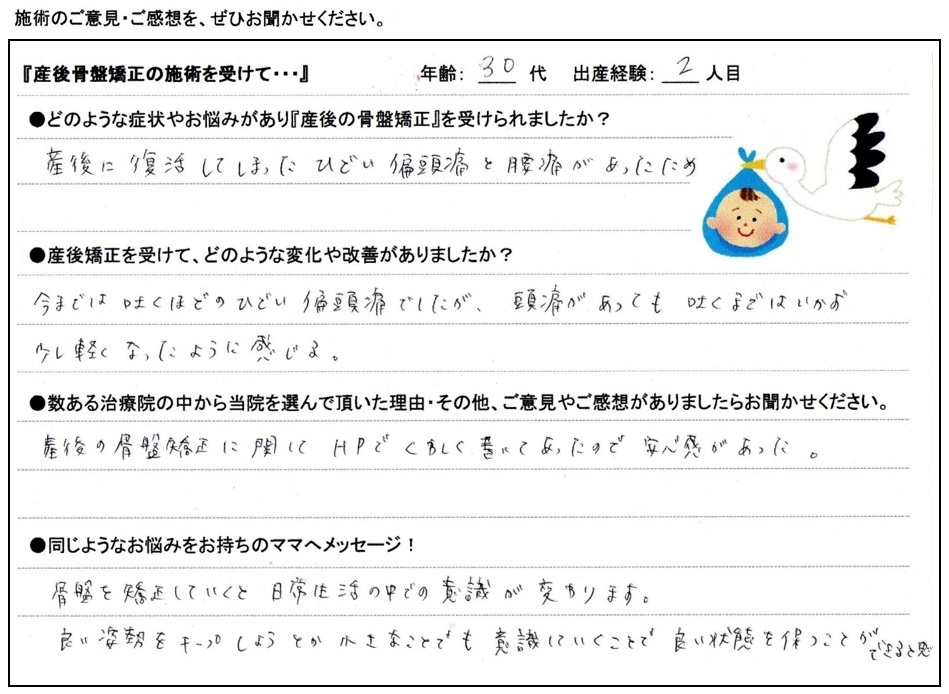 施術のご意見・ご感想を、ぜひお聞かせください。
『産後骨盤矯正の施術を受けて・・・』 年齢: 30 代 出産経験: 2 人目
●どのような症状やお悩みがあり『産後の骨盤矯正』を受けられましたか？
産後に復活してしまったひどい偏頭痛と腰痛があったため
●産後矯正を受けて、どのような変化や改善がありましたか？
今までは吐くほどのひどい偏頭痛でしたが、頭痛があっても吐くまではいかず
少し軽くなったように感じる。
●数ある治療院の中から当院を選んで頂いた理由・その他、ご意見やご感想がありましたらお聞かせください。
産後の骨盤矯正に関してHPでくわしく書いてあったので安心感があった。
●同じようなお悩みをお持ちのママへメッセージ！
骨盤を矯正していくと日常生活の中での意識が変わります。
良い姿勢をキープしようとか小さなことでも意識していくことで良い状態を保つことができると思